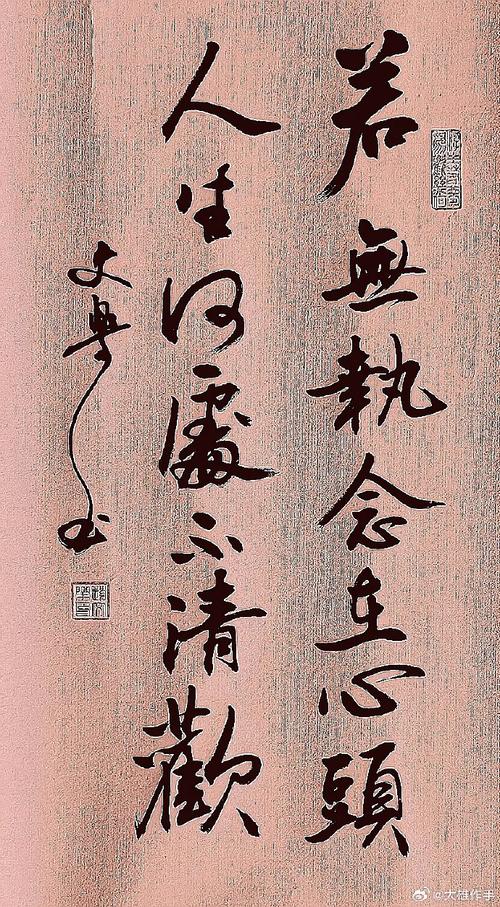 若無執念在心頭
人生何處不清歡
@大雄作手